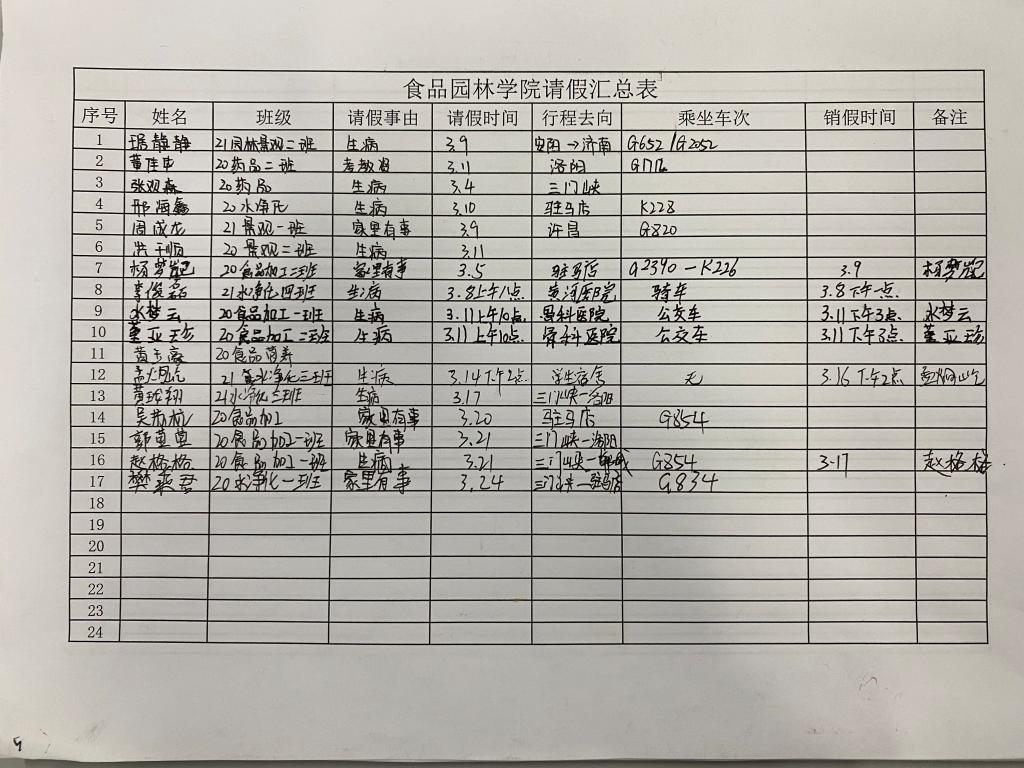 食品园林学院请假汇总表
序号 姓名 班级 请假事由 请假时间 行程去向 乘坐车次 销假时间 备注
1 静静 21园林景观二班 生病 3.9 安阳→济南 G652/G2052
2 黄佳 20药品二班 考教资 3.11 洛阳
3 张观森 20药品 生病 3.4 三门峡
4 邢海鑫 20水净化 生病 3.10 驻马店 K228
5 周成龙 21景观一班 家里有事 3.9 许昌 G820
6 洪于顺 20景观二班 生病 3.11
7 杨梦 20食品加工二班 家里有事 3.5 驻马店 G2390-K226 3.9 杨梦
8 李俊磊 21水净化四班 生病 3.8上午1点 黄河医院 骑车 3.8下午点
9 水梦云 20食品加工一班 生病 3.11上午10点 骨科医院 公交车 3.11下午3点 水梦云
10 董亚珍 20食品加工二班 生病 3.11上午10点 骨科医院 公交车 3.11下午3点 董亚珍
11 黄 20食品营养
12 孟 21 水净化三班 生病 3.14下午2点 学生宿舍 无 3.16下午2点
13 黄 翔 21水净化三班 生病 3.17 三门峡-洛阳
14 吴 杭 20食品加工 家里有事 3.20 驻马店 G854
15 郭 20食品加工一班 家里有事 3.21 三门峡-洛阳
16 赵格格 20食品加工一班 生病 3.21 三门峡- G854 3-17 赵格格
17 樊 君 20水净化一班 家里有事 3.24 三门峡-驻马店 G834
18
19
20
21
22
23
24